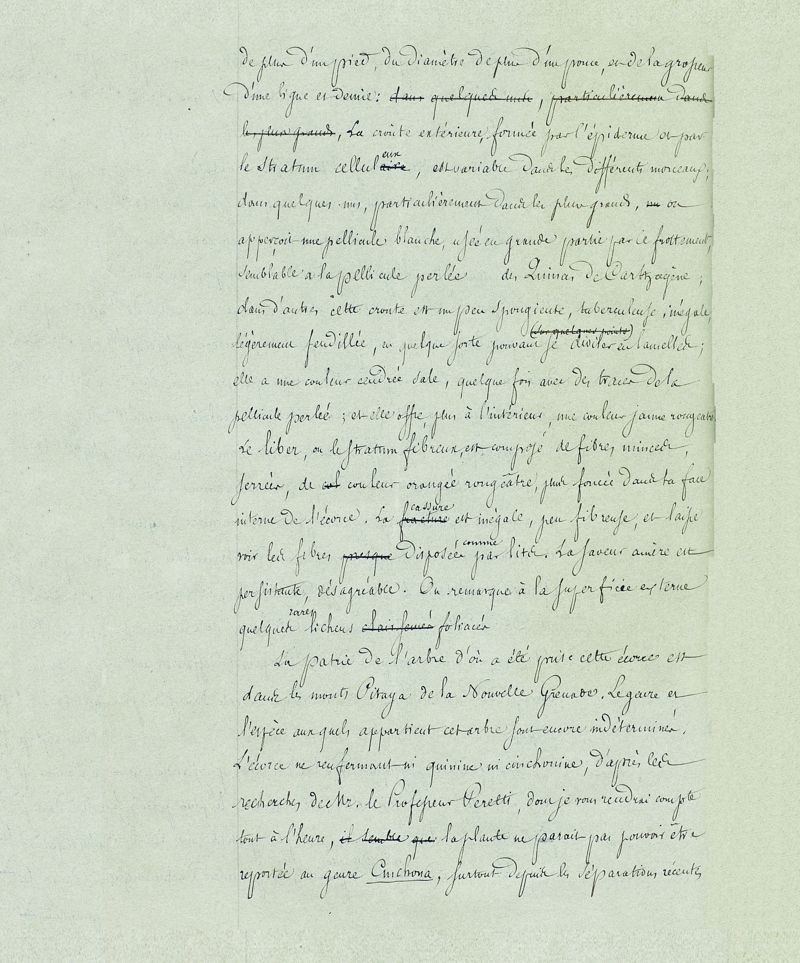 de plus d'un pied, du diamètre de plus d'un pouce, et de la grosseur
d'une ligne et demie: dans quelques uns, particulièrement dans
les plus grands, La croûte extérieure, formée par l'épiderme et par
le stratum celluleux aire, est variable dans les différents morceaux;
dans quelques-uns, particulièrement dans les plus grands, un on
apperçoit une pellicule blanche, usée en grande partie par le frottement,
semblable a la pellicule perlée des Quinas de Carthagène;
dans d'autres cette croute est un peu spongieuse, tuberculeuse, inégale,
légèrement fendillée, en quelque sorte pouvant (sur quelques points) se diviser en lamelles;
elle a une couleur cendrée sale, quelque fois avec des traces de la
pellicule perlée; et elle offre, plus à l'intérieur, une couleur jaune rougeatre.
Le liber, ou le stratum fibreux, est composé de fibres minces,
serrées, de col couleur orangée rougeâtre, plus foncée dans la face
interne de l'écorce. La fracture cassure est inégale, peu fibreuse, et laisse
voir les fibres presque disposées comme par lits. La saveur amère est
persistante, désagréable. On remarque à la superficie externe
quelques rares lichens clair semés foliacés
La patrie de l'arbre d'où a été prise cette écorce est
dans les monts Pitaya de la Nouvelle Grenade. Le genre et
l'espèce auxquels appartient cet arbre sont encore indéterminés.
L'écorce ne renfermant ni quinine ni cinchonine, d'après les
recherches de Mr. le Professeur Peretti, dont je vous rendrai compte
tout à l'heure, il semble que la plante ne parait pas pouvoir être
reportée au genre Cinchona, surtout depuis les séparations récentes